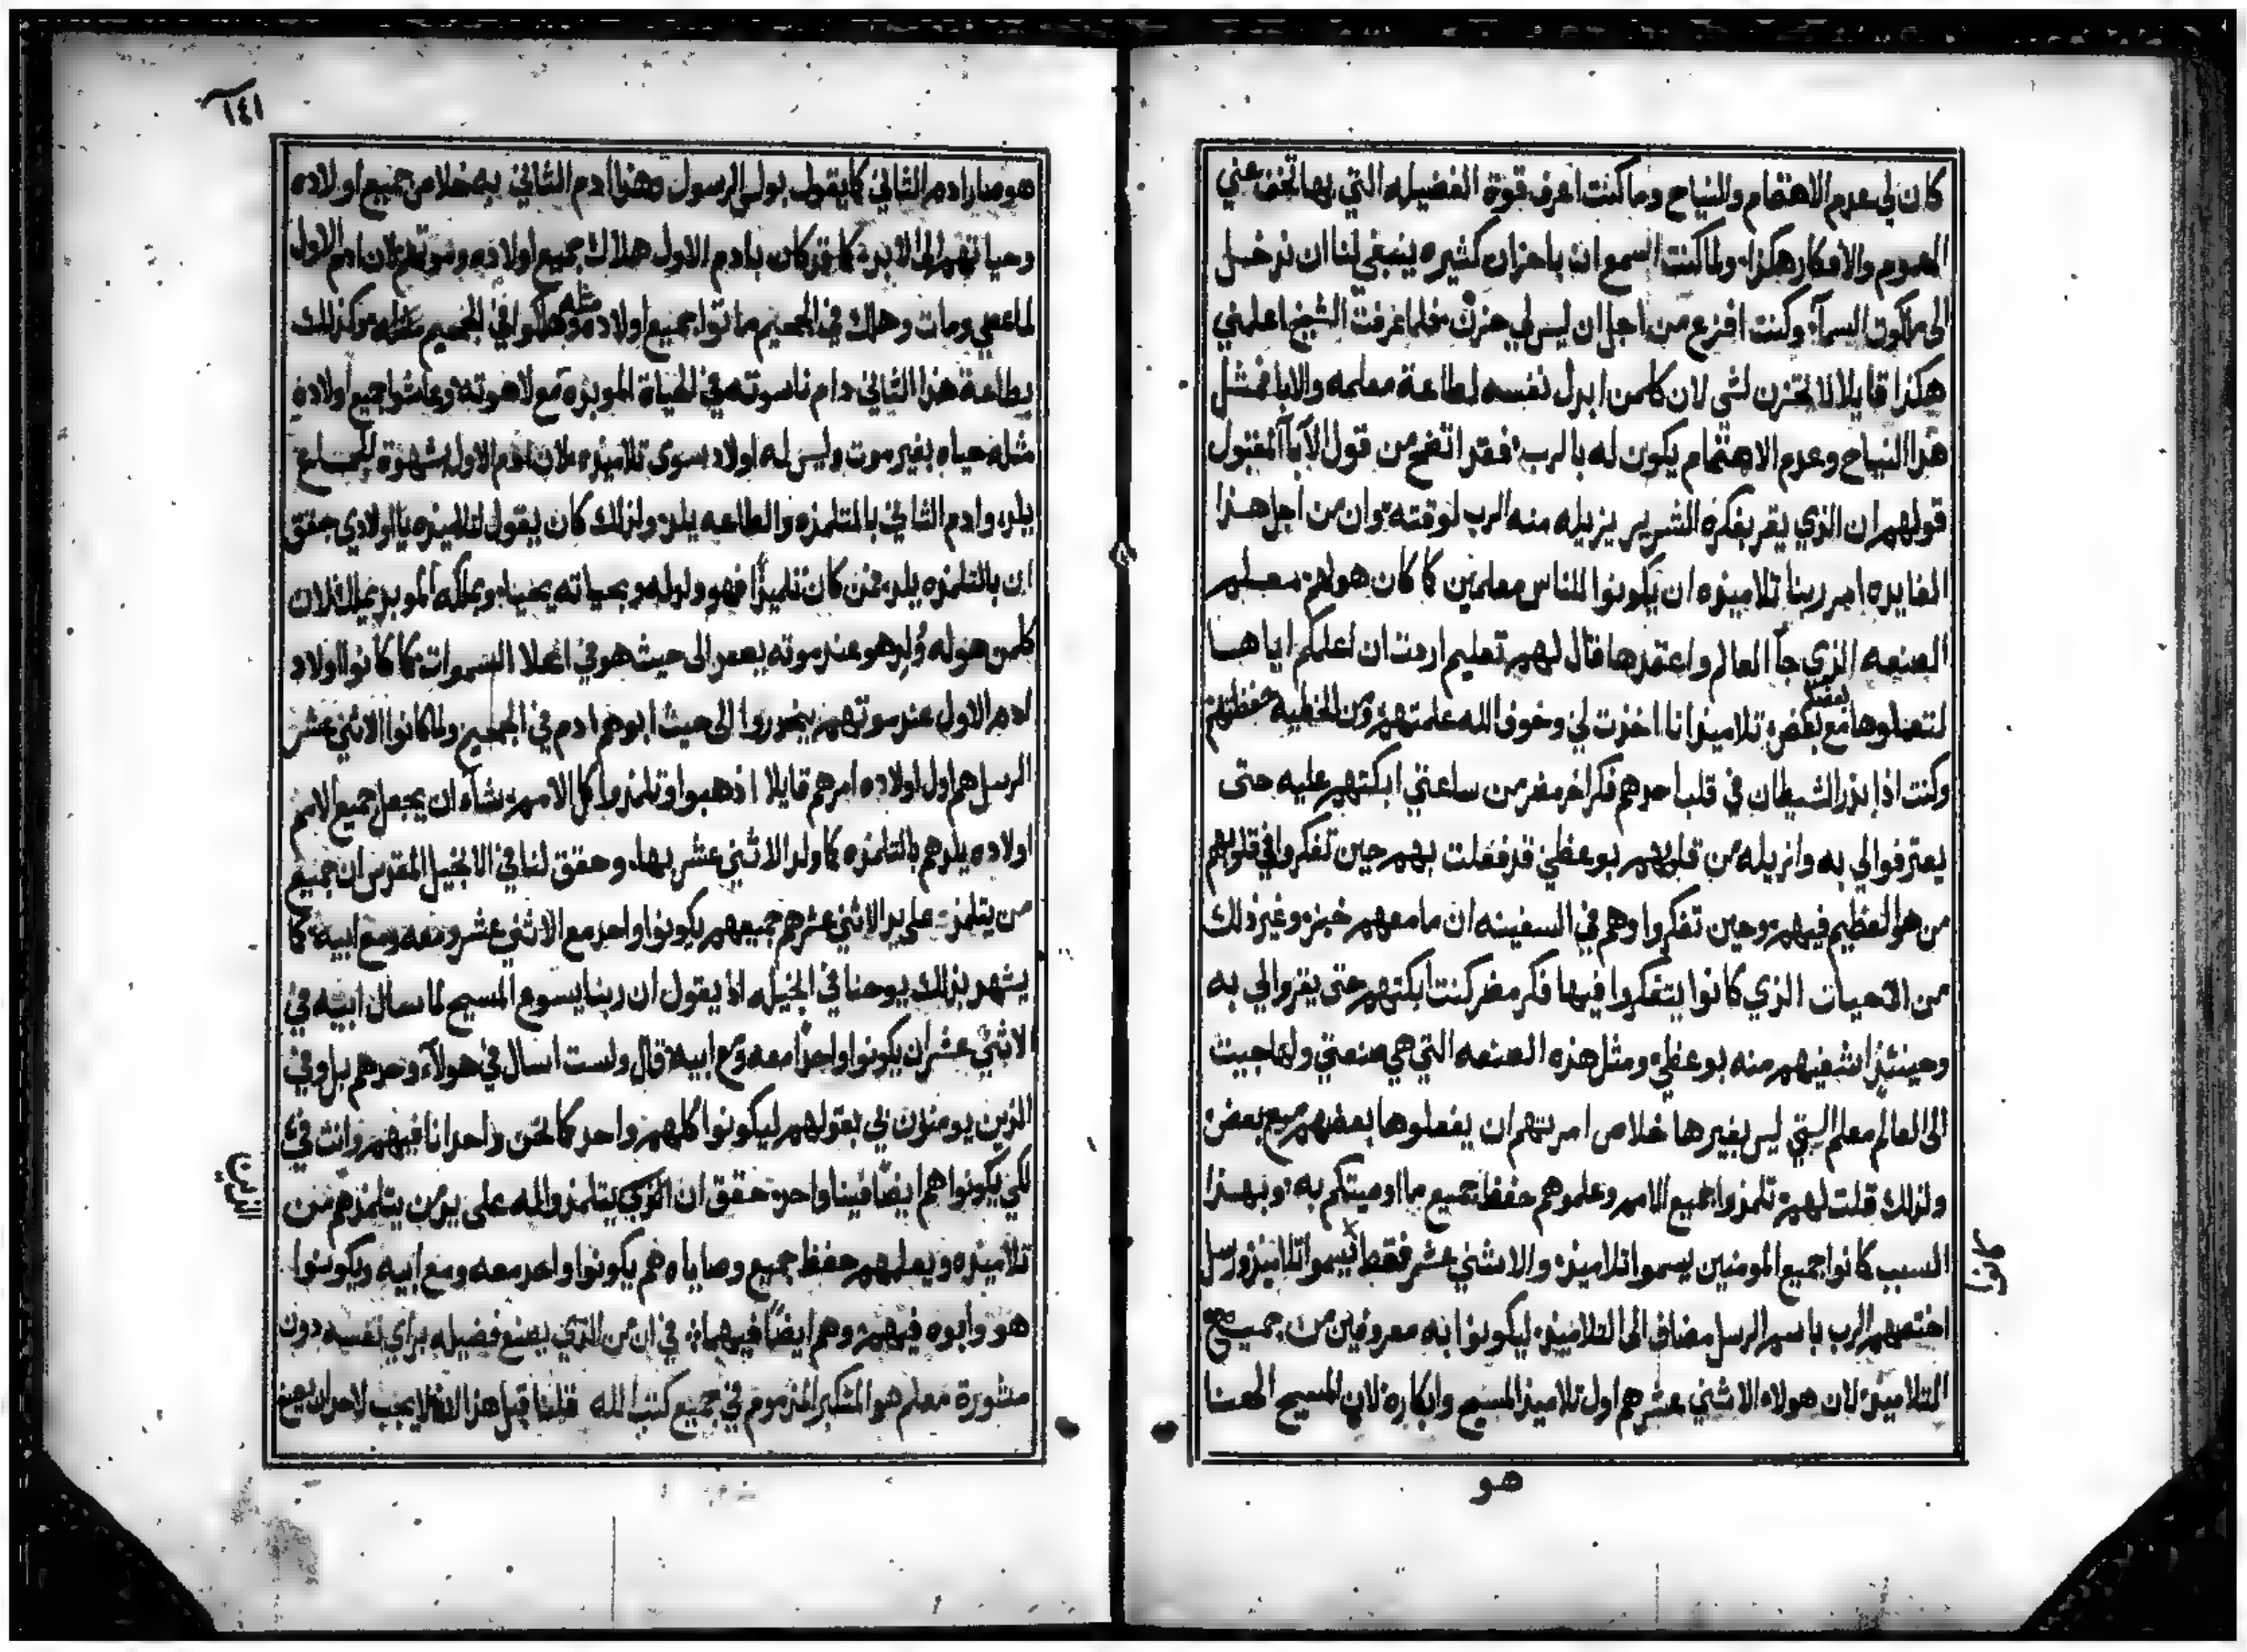 كان لي بعدم الاهتمام والنياح وما كنت اعرف قوة الفضيله التي بها تخف عني
الهموم والافكار هكذا، ولما كنت اسمع ان باحزان كثيره ينبغي لنا ان ندخل
الى ملكوت السمآء وكنت افزع من اجل ان ليس لي حزن فلما عرفت الشيخ اعلمني
هكذا قايلا لا تحتزن لشي لان كلمن ابدل نفسه لطاعة معلمه والابا فمثل
هذا النياح وعدم الاهتمام يكون له بالرب فقد اتضح من قول الآبآ المقبول
قولهم ان الذي يقر بفكره الشرير يزيله منه الرب لوقته وان من اجل هذا
الفايده امر ربنا تلاميذه ان يكونوا للناس معلمين كما كان هو لهم معلم
الصنعه الذي جآ العالم واعتمدها فقال لهم تعليم اردت ان اعلمكم اياها
لتعملوها مع بعضكم بعض تلاميذ انا اخذت لي وخوف الله علمتهم ومن الخطيه حفظتهم
وكنت اذا بذر الشيطان في قلب احدهم فكرا خر مضر من ساعتي ابكتهم عليه حتى
يعترفوا لي به وازيله من قلوبهم بوعظي قد فعلت بهم حين تفكروا في قلوبهم
من هو العظيم فيهم وحين تفكروا وهم في السفينه ان ما معهم خبز وغير ذلك
من الذي كانوا يتفكروا فيها فكر مضر كنت ابكتهم حتى يقروا لي به
وحينئذ اشفيهم منه بوعظي ومثل هذه الصنعه التي هي صنعتي ولها جيت
الى العالم معلم التي ليس بغيرها خلاص امرتهم ان يفعلوها بعضهم مع بعض
ولذلك قلت لهم تلمذوا جميع الامم وعلموهم حفظ جميع ما اوصيتكم به وبهذا
السبب كانوا جميع المومنين يسموا تلاميذ والاثني عشر فقط يسموا تلاميذ ورسل
كانوا
اختصهم الرب باسم الرسل مضاف الى التلاميذ ليكونوا به معروفين من جميع
التلاميذ لان هولاء الاثني عشر هم اول تلاميذ المسيح وابكاره لان المسيح الهنا
هو
١٤١
هو صار ادم الثاني كما يقول بولس الرسول وهذا ادم الثاني به خلاص جميع اولاده
وحياتهم الى الابد كما قد كان بادم الاول هلاك جميع اولاده وموتهم لان ادم الاول
لما عصي ومات وهلك في الجحيم ماتوا جميع اولاده مثله وهلكوا في الجحيم مثله وكذلك
بطاعة هذا الثاني دام ناسوته في الحياة الموبده مع لاهوته وعاشوا جميع اولاده
مثله حياه بغير موت وليس له اولاد سوى تلاميذه لان ادم الاول بشهوة الجماع
يلد وادم الثاني بالتلمذه والطاعه يلد ولذلك كان يقول لتلاميذه يا اولادي يحقق
ان بالتلمذه يلد فمن كان تلميذًا فهو ولد له وبحياته يحيا وبملكه الموبد يملك لان
كلمن هو له وُلِد هو عند موته يصعد الى حيث هو في اعلا السموات كما كانوا اولاد
ادم الاول عند موتهم ينحدروا الى حيث ابوهم ادم في الجحيم ولما كانوا الاثني عشر
الرسل هم اول اولاده امرهم قايلا اذهبوا وتلمذوا كل الامم يشآء ان يجعل جميع الامم
اولاده يلدهم بالتلمذه كما ولد الاثني عشر بها، وحقق لنا في الانجيل المقدس ان جميع
من يتلمذ على يد الاثني عشر هم جميعهم يكونوا واحد مع الاثني عشر ومعه ومع ابيه كما
يشهد بذلك يوحنا في انجيله اذ يقول ان ربنا يسوع المسيح لما سال ابيه في
الاثني عشر ان يكونوا واحدًا معه ومع ابيه قال ولست اسال في هولآء وحدهم بل وفي
الذين يومنون بي بقولهم ليكونوا كلهم واحد كما نحن واحد انا فيهم وانت في
لكي يكونوا هم ايضًا فينا واحد حقق ان الذي يتلمذوا له على يد من يتلمذهم من
تلاميذه ويعلمهم حفظ جميع وصاياه هم يكونوا واحد معه ومع ابيه ويكونوا
هو وابوه فيهم وهم ايضًا فيهما في ان من الذي يصنع فضيله براي نفسه دون
مشورة معلم هو المتكبر المذموم في جميع كتب الله قلنا قبل هذا انه لا يجب لاحد ان يصنع